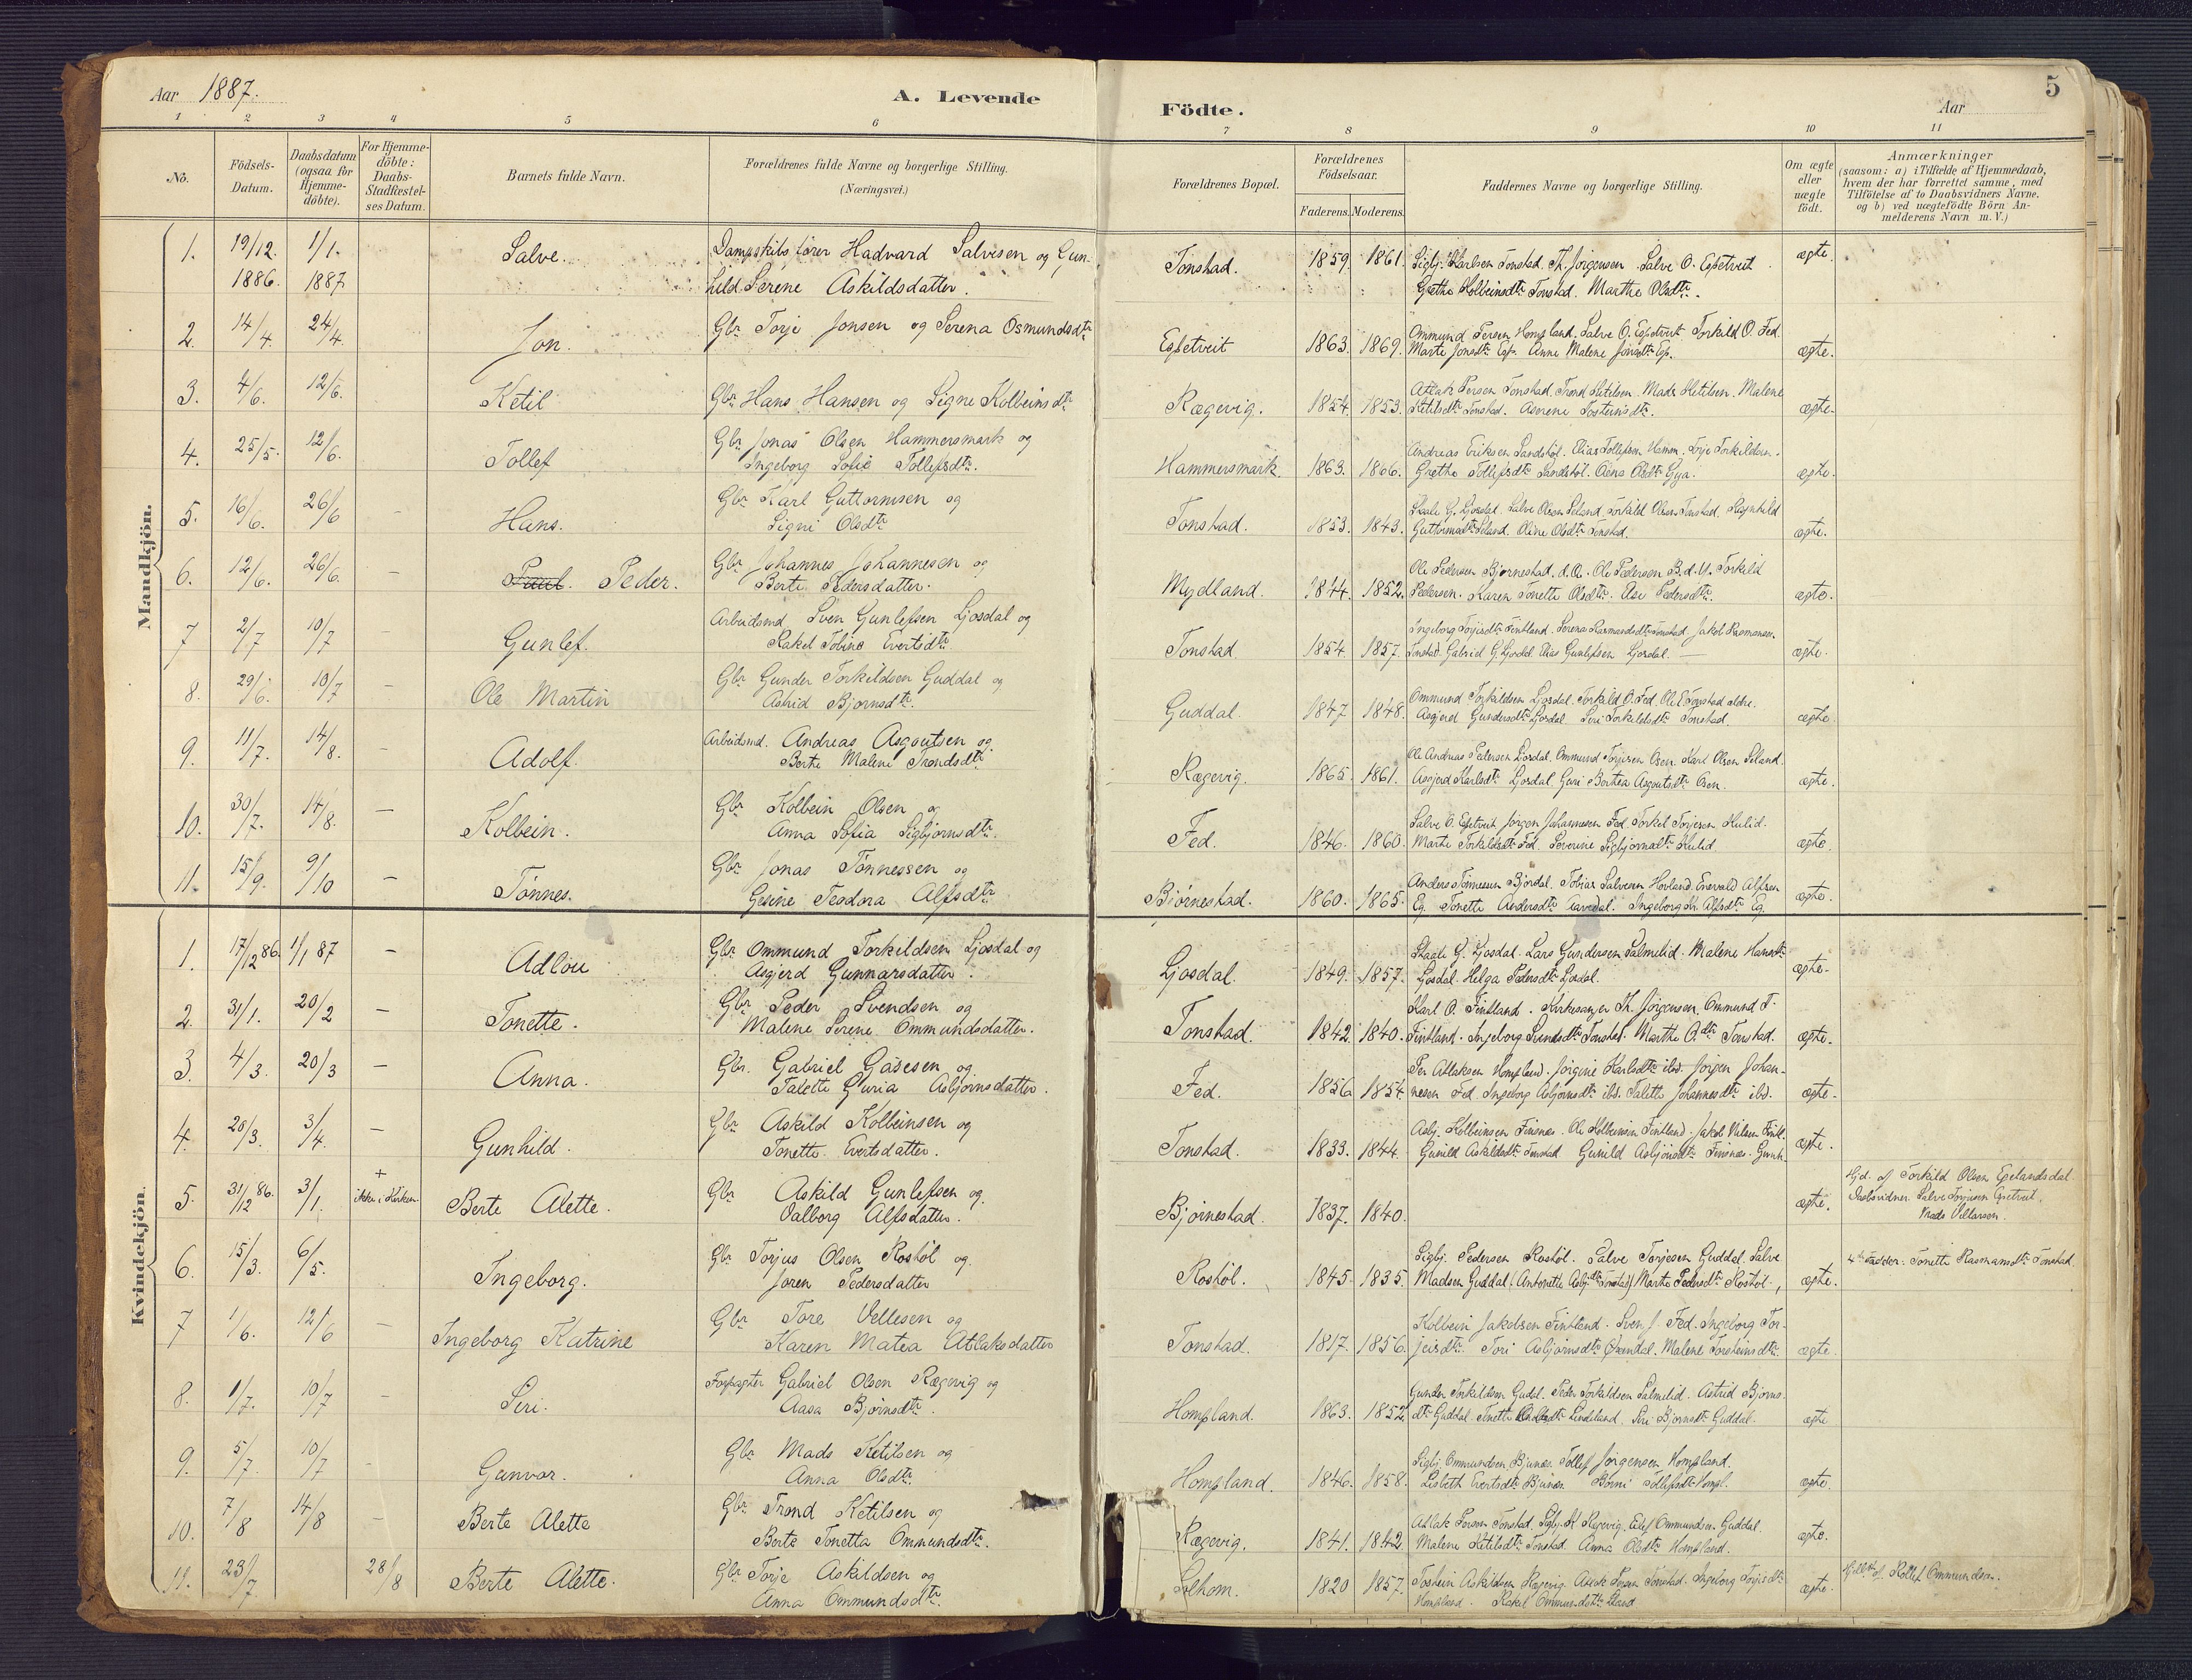 Aar 1887. A. Levende Födte. Aar 5
1 2 3 4 5 6 7 8 9 10 11
No.
Födsels-Datum.
Daabsdatum (ogsaa for Hjemme-döbte).
For Hjemme-döbte: Daabs-Stadfæstel-ses Datum.
Barnets fulde Navn.
Forældrenes fulde Navne og borgerlige Stilling. (Næringsvei.)
Forældrenes Bopæl.
Forældrenes Födselsaar. Faderens. Moderens.
Faddernes Navne og borgerlige Stilling.
Om ægte eller uægte födt.
Anmærkninger
(saasom: a) i Tilfælde af Hjemmedaab,
hvem der har forrettet samme, med
Tilföielse af to Daabsvidners Navne.
og b) ved uægtefödte Börn An-
melderens Navn m. V.)
Mandkjön.
1. 19/12. 1/1. Salve. Dampskibsfører Hadvard Salvesen og Gun- Tonstad. 1859. 1861. Sigbj. Karlsen Tonstad. Th. Jörgensen. Salve O. Espetveit. ægte.
1886. 1887 hild Serene Askildsdatter. Grethe Kolbeinsdtr. Tonstad. Marthe Olsdtr.
2. 14/4. 24/4. Jon. Gbr. Torje Jonsen og Serena Osmundsdtr. Espetveit 1863. 1869. Ommund Persen Hompland. Salve O. Espetveit. Torkild O. Fed.
Marte Jonsdtr. Esp. Anne Malene Jonsdtr. Esp. ægte.
3. 4/6. 12/6. Ketil Gbr. Hans Hansen og Signe Kolbeinsdtr. Rægevig. 1854. 1853. Atlak Persen Tonstad. Trond Ketilsen. Mads Ketilsen. Malene
Ketilsdtr. Tonstad. Aserene Tosteinsdtr. ægte.
4. 25/5. 12/6. Tollef Gbr. Jonas Olsen Hammersmark og
Ingeborg Sofie Tollefsdtr. Hammersmark. 1863. 1866. Andreas Eriksen Sandstøl. Elias Tollefsen Hamm. Torje Torkildsen.
Grethe Tollefsdtr. Sandstøl. Olsdtr. Gya. ægte.
5. 16/6. 26/6 Hans. Gbr. Karl Guttormsen og
Signi Olsdtr. Tonstad. 1853. 1843. Staale G. Ljosdal. Salve Olsen Seland. Torkild Olsen Tonstad. Ragnhild
Guttormsdtr. Seland. Oline Olsdtr. Tonstad. ægte.
6. 12/6. 26/6. Peder. Gbr. Johannes Johannesen og
Berte Pedersdatter. Mydland. 1844. 1852. Ole Pedersen Bjørnestad. d. Æ. Ole Pedersen B. d. Y. Torkild
Pedersen. Karen Tonette Olsdtr. Pedersdtr. ægte.
7 2/7 10/7 Gunlef. Arbeidsmd. Sven Gunlefsen Ljosdal og
Rakel Tobine Evertsdtr. Tonstad 1854. 1857. Ingeborg Torjusdtr. Fintland. Serena Rasmusdtr. Tonstad. Jakob Rasmussen
Tonstad. Gabriel G. Ljosdal. Elias Gunlefsen Ljosdal. ægte.
8. 29/6. 10/7 Ole Martin Gbr. Gunder Torkildsen Guddal og
Astrid Bjørnsdtr. Guddal. 1847. 1848. Ommund Torkildsen Ljosdal. Torkild O. Fed. Ole Tonstad ældre.
Asgjerd Gundersdtr. Ljosdal. Siri Torkildsdtr. Tonstad. ægte.
9. 11/7. 14/8. Adolf. Arbeidsmd. Andreas Asgoutsen og
Berthe Malene Trondsdtr. Rægevig. 1865. 1861. Ole Andreas Pedersen Ljosdal. Ommund Torjusen Osen. Karl Olsen Seland.
Asgjerd Karlsdtr. Ljosdal. Guri Bertea Asgoutsdtr. Osen. ægte.
10. 30/7. 14/8. Kolbein. Gbr. Kolbein Olsen og
Anna Sofia Sigbjørnsdtr. Fed. 1846. 1860. Salve O. Espetveit. Jørgen Johannesen Fed. Torkel Torjesen Hulid.
Marte Torkildsdtr. Fed. Severine Sigbjørnsdtr. Hulid. ægte.
11. 15/9. 9/10 Tønnes. Gbr. Jonas Tønnessen og
Gesine Teodora Alfsdtr. Bjørnestad. 1860. 1865. Anders Tønnesen Bjordal. Tobias Salvesen Hovland. Enervald Alfsen
Eg. Tonette Andersdtr. Ingeborg M. Alfsdtr. Eg. ægte.
Kvindekjön.
1. 17/12 86. 1/1 87 Adlou Gbr. Ommund Torkildsen Ljosdal og
Asgjerd Gunnarsdatter. Ljosdal. 1849. 1857. Staale G. Ljosdal. Lars Gundersen Salmelid. Malene Hansdtr.
Ljosdal. Helga Pedersdtr. Ljosdal. ægte.
2. 31/1. 20/2 Tonette. Gbr. Peder Svendsen og
Malene Serene Ommundsdatter. Tonstad. 1842. 1840. Karl O. Fintland. Kirkesanger Th. Jörgensen. Ommund T.
Fintland. Ingeborg Svendsdtr. Tonstad. Marthe O.dtr. Tonstad. ægte.
3. 4/3. 20/3 Anna. Gbr. Gabriel Gasesen og
Talette Guria Asbjørnsdatter. Fed. 1856. 1854. Per Atlaksen Hompland. Jörgine Karlsdtr. ibd. Jörgen Johan-
nesen Fed. Ingeborg Asbjørnsdtr. ibd. Talette Johannesdtr. ibd. ægte.
4. 26/3. 3/4. Gunhild. Gbr. Askild Kolbeinsen og
Tonette Evertsdatter. Tonstad. 1833. 1844. Asbj. Kolbeinsen Finsnes. Ole Kolbeinsen Fintland. Jakob Nilsen Fintl.
Gunild Askildsdtr. Tonstad. Gunild Asbjønsdtr. Finsnes. ægte.
5. 31/12 86. 3/1. + ikke i Kirken Berte Alette. Gbr. Askild Gunlefsen og
Valborg Alfsdatter. Bjørnestad. 1837. 1840. ægte. Hjd. af Torkild Olsen Egelandsdal.
Daabsvidner Salve Torjusen Espetveit,
Mads Vellarsen.
6. 15/3. 6/5. Ingeborg. Gbr. Torjus Olsen Rostøl og
Joren Pedersdatter Rostøl. 1845. 1835. Sigbj. Pedersen Rostøl. Salve Torjesen Guddal. Salve
Madsen Guddal (Anborette Asbj.dtr. Tonstad) Marte Pedersdtr. Rostøl. ægte. 4de Fadder: Tonette Rasmusdtr. Tonstad.
7 1/6. 12/6 Ingeborg Katrine Gbr. Tore Vellesen og
Karen Matea Atlaksdatter Tonstad. 1817. 1856. Kolbein Jakobsen Fintland. Sven J. Fed. Ingeborg Tor-
jeisdtr. Tori Asbjørnsdtr. Malene Torsteinsdtr. ægte.
8. 1/7. 10/7 Siri. Forpagter Gabriel Olsen Rægevig og
Aasa Bjørnsdtr. Hompland. 1863. 1852 Gunder Torkildsen Gudal. Peder Torkildsen Salmelid. Astrid Bjørns-
dtr. Guddal. Tonette Lindeland. Siri Bjørnsdtr. Guddal. ægte
9. 5/7. 10/7 Gunvor. Gbr. Mads Ketilsen og
Anna Olsdtr. Hompland. 1846. 1858. Sigbj. Ommundsen Bjunes. Tollef Jørgensen Hompland.
Lisbeth Evertsdtr. Bjunes. Tollefsdtr. Hompl. ægte.
10. 7/8 14/8 Berte Alette Gbr. Trond Ketilsen og
Berte Tonetta Ommundsdtr. Rægevig. 1841. 1842. Atlak Persen Tonstad. Sigbj. H. Rægevig. Eilef Ommundsen Guddal.
Malene Ketilsdtr. Tonstad. Anna Olsdtr. Hompland. ægte.
11. 23/7 28/8 Berte Alette. Gbr. Torje Askildsen og
Anna Ommundsdtr. Solhom. 1820 1857. Tostein Askildsen Rægevig. Atlak Persen Tonstad. Ingeborg Torjusdtr.
Hompland. Rakel Ommundsdtr. ægte. Ommundsen.